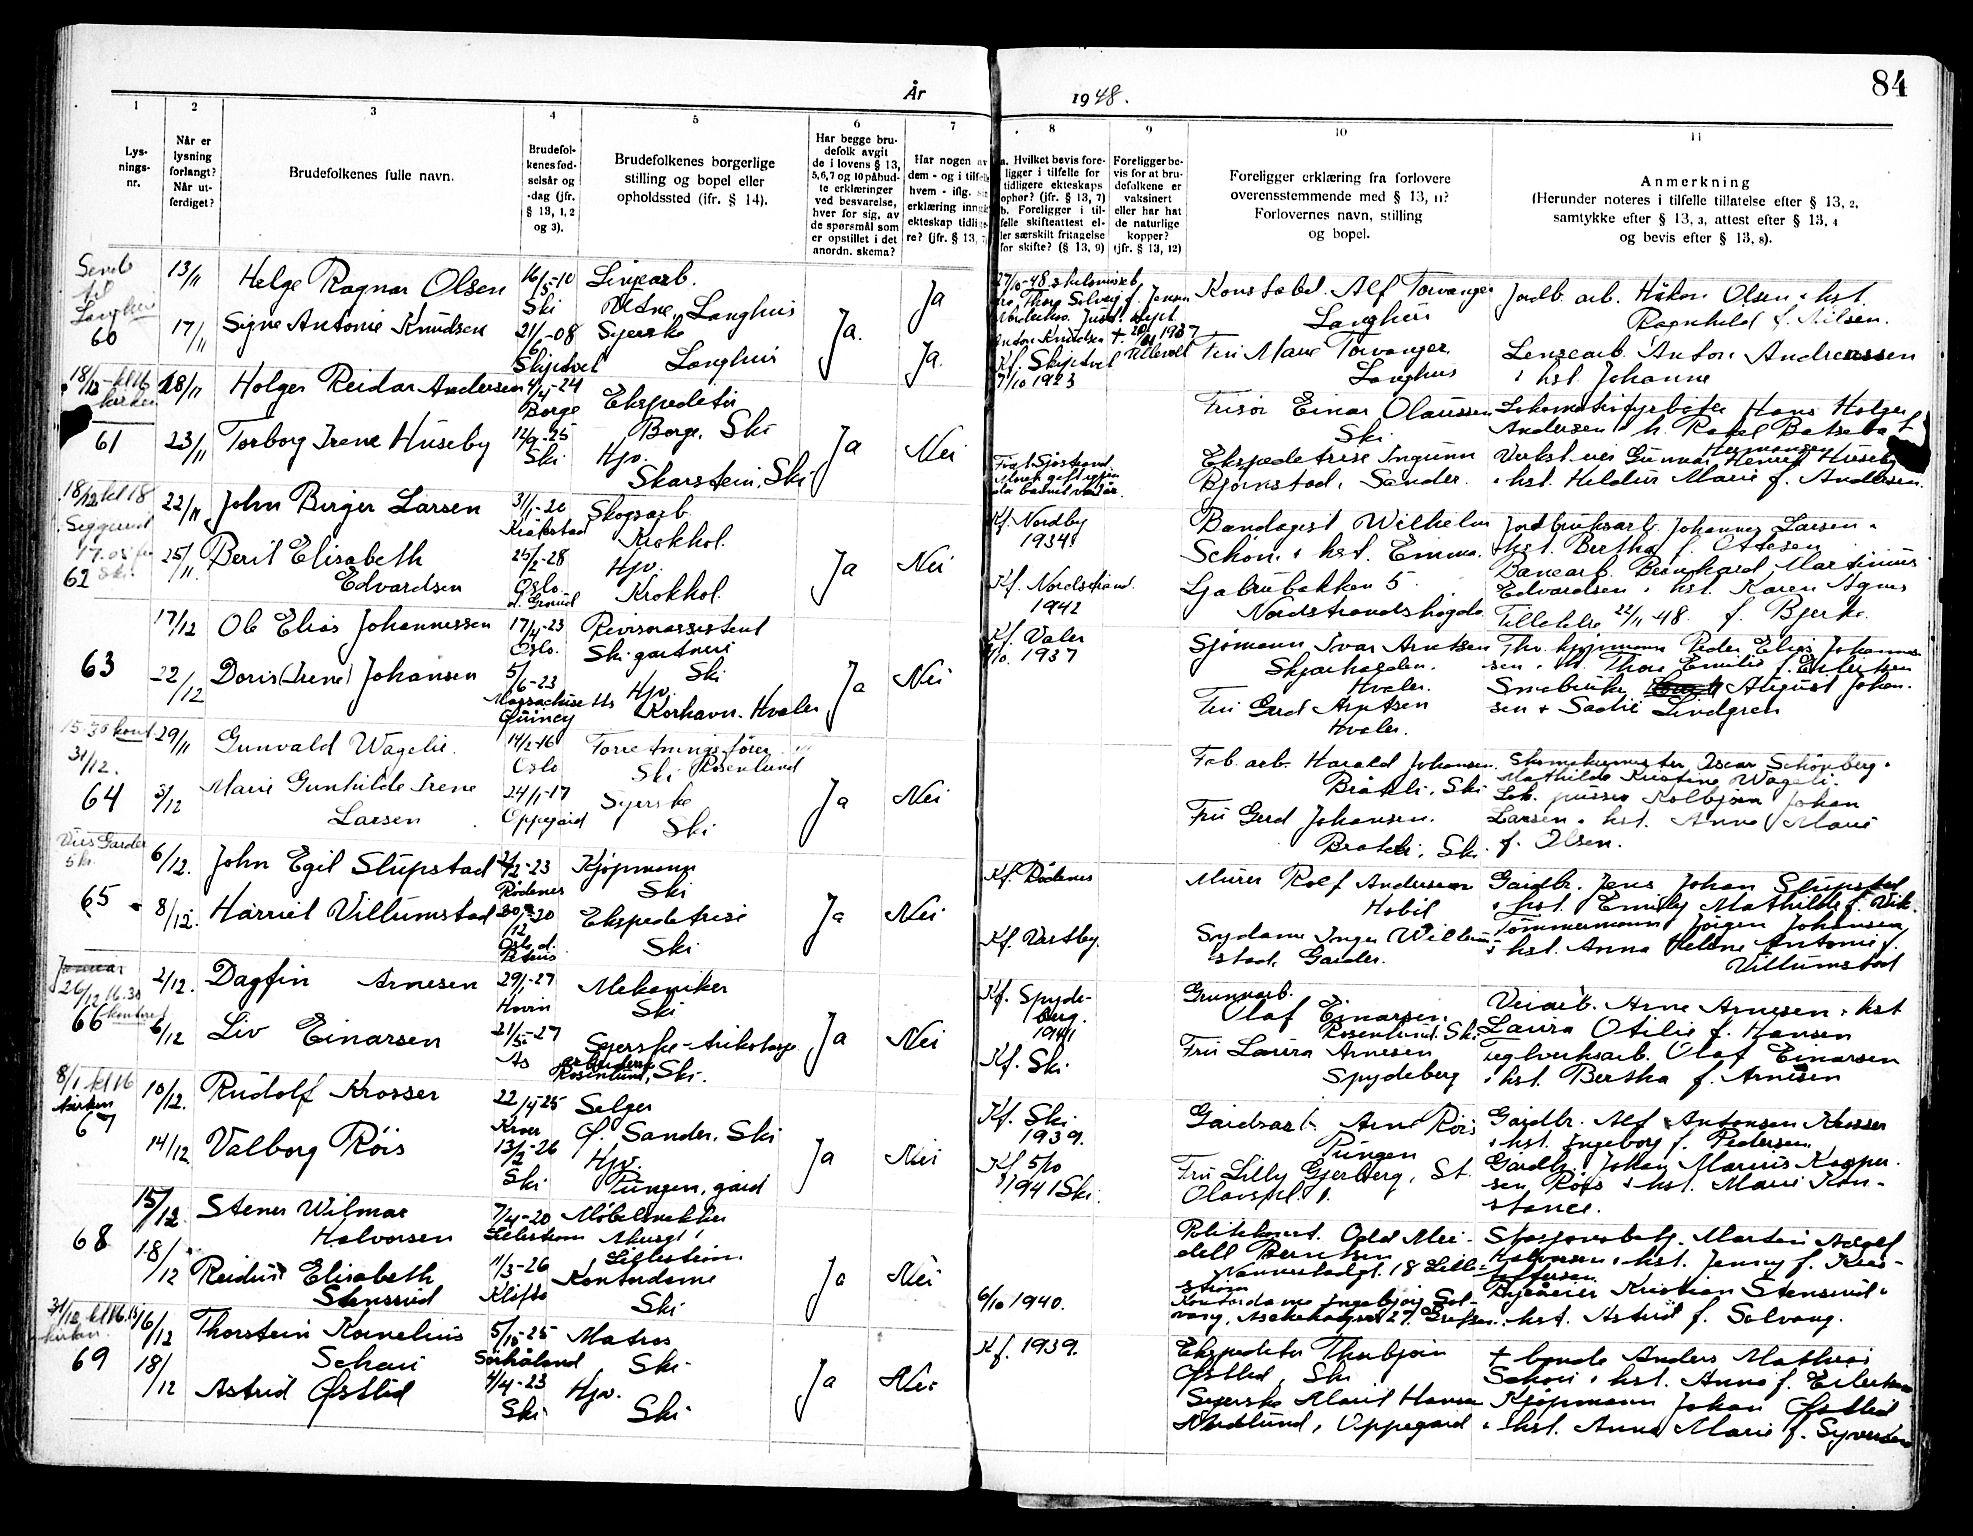 84
År 1948.
1 2 3 4 5 6 7 8 9 10 11
Lys-
nings-
nr.
Når er
lysning
forlangt?
Når ut-
ferdiget?
Brudefolkenes fulle navn.
Brudefol-
kenes fød-
selsår og
-dag (jfr.
§ 13, 1, 2
og 3).
Brudefolkenes borgerlige
stilling og bopel eller
opholdssted (ifr. § 14).
Har begge bru-
defolk avgit
de i lovens § 13,
5,6,7 og 10 påbud-
te erklæringer
ved besvarelse,
hver for sig, av
de spørsmål som
er opstillet i det
anordn. skema?
Har nogen av
dem - og i tilfelle
hvem - iflg.
erklæring inngått
ekteskap tidlige-
re? (jfr. § 13,
a. Hvilket bevis fore-
ligger i tilfelle for
tidligere ekteskaps
ophør? (jfr. § 13, 7)
b. Foreligger i til-
felle skifteattest el-
ler særskilt fritagelse
for skifte? (§ 13, 9)
Foreligger be-
vis for at bru-
defolkene er
vaksinert
eller har hat
de naturlige
kopper?
(jfr. § 13, 12)
Foreligger erklæring fra forlovere
overensstemmende med § 13, 11?
Forlovernes navn, stilling
og bopel.
Anmerkning
(Herunder noteres i tilfelle tillatelse efter § 13, 2,
samtykke efter § 13, 3, attest efter § 13, 4
og bevis efter § 13, 8).
Sendt
til
Langhus
60
13/11 Helge Ragnar Olsen 16/5-10 Ski Linjearb. Langhus Ja
17/11 Signe Antonie Knudsen 21/6-08 Skiptvet Syerske Langhus Ja. Ja.
27/10-48 skilsmisseb.
Anton Knudsen + 1937 Ullevål
Kf. Skiptvet
7/10 1923
Konstabel. Alf Torvanger
Langhus
Fru Marie Torvanger.
Langhus
Jordb. arb. Håkon Olsen & hst.
Ragnhild f. Nilsen.
Lensearb. Anton Andreassen
& hst. Johanne
18/12 kl 16
kirken
61
18/11 Holger Reidar Andersen 4/4-24 Borge Ekspeditør
Borge, Ski
23/11 Torborg Irene Huseby 12/9-25 Ski Hjv.
Skarstein, Ski Ja Nei
Frisør Einar Olaussen
Ski
Ekspeditrise Ingunn
Bjørnstad, Sander.
Lokomotivfyrbøter Hans Holger
Andersen & h. Rakel Batseba f.
Hermansen
Verkst. eier Gunnar Henry Huseby
& hst. Hildur Marie f. Andersen.
18/12 kl 18
Siggerud
62
22/11 John Birger Larsen 31/1-20 Kråkstad Skogsarb.
Krokhol.
25/11. Berit Elisabeth
Edvardsen 25/2-28 Oslo Hjv.
Krokhol. Ja Nei
Kf. Nordby
1934.
Kf. Nordstrand.
1942
Bandagist Wilhelm
Schøn & hst. Emma.
Ljabrubakken 5.
Nordstrandshøgda
Jordbruksarb. Johannes Larsen &
hst. Bertha f. Ottesen
Banearb. Bernhard Martinius
Edvardsen & hst. Karen Agnes
Tillatelse 22/11 48. f. Bjerke.
63
17/12 Ole Elias Johannessen 17/4-23 Oslo. Revisorassistent
Ski gartneri
Ski
22/12 Doris (Irene) Johansen 5/6-23 Massachusetts Quincy Hjv.
Korhavn. Hvaler Ja Nei
Kf. Våler
1937
Sjømann Ivar Arntsen
Skjærhalden.
Hvaler.
Fru Gerd Arntsen
Hvaler.
Fhv. kjøpmann Peder Elias Johannes-
sen & h. Thora Emilie f. Eilertsen
Småbruker August Johan-
sen & Sadie Lindgren
15.30 kont.
31/12.
64
29/11 Gunvald Wageli. 14/2-16 Oslo Forretningsfører
Ski Rosenlund
3/12 Marie Gunhilde Irene
Larsen 24/1-17 Oppegård Syerske
Ski Ja Nei
Fab. arb. Harald Johansen.
Bråtli, Ski
Fru Gerd Johansen.
Bråtli, Ski
Skomakermester Oscar Schönberg &
Mathilde Kristine Wageli.
Lok. pusser Kolbjørn Johan
Larsen & hst. Anna Marie
f. Olsen.
Vies Garder
65
6/12. John Egil Slupstad 2/2-23 Rødenes Kjøpmann
Ski
8/12. Harriet Villumstad 20/12-20 Oslo, d. Petrus Ekspeditrise
Ski Ja Nei
Kf. Rødenes
Kf. Vestby.
Murer Rolf Andersen
Hobøl
Sydame Inger Willum-
stad, Garder.
Gårdbr. Jens Johan Slupstad
& hst. Emily Mathilde f. Vik.
Tømmermann Jørgen Johansen
& hst. Anna Helene Antonie f.
Villumstad
Januar
26/12 16.30
kontoret
66
2/12. Dagfin Arnesen 29/1-27 Hovin Mekaniker
Ski
6/12 Liv Einarsen 21/5-27 Ås Syerske-trikotasje
arbeiderske
Rosenlund, Ski. Ja Nei
Kf. Spyde-
berg.
1941
Kf. Ski.
Grunnarb.
Olaf Einarsen
Rosenlund. Ski
Fru Laura Arnesen
Spydeberg
Veiarb. Arne Arnesen & hst
Laura Otilie f. Hansen
Teglverksarb. Olaf Einarsen
& hst. Bertha f. Arnesen
8/1 kl 16
kirken
67
10/12. Rudolf Krosser 22/4-25 Kroer Selger
Ø. Sander, Ski
14/12 Valborg Røis 13/2-26 Ski Hjv.
Pungen, gård Ja Nei
Kf. Ski
1939.
Kf. 5/10
1941 Ski.
Gårdsarb. Arne Røis
Pungen
Fru Lilly Gjerberg, St.
Olavspl. 1.
Gårdbr. Alf Antonsen Krosser
& hst. Ingeborg f. Pedersen
Gårdbr. Johan Marius Kasper-
sen Røis & hst. Marie Kon-
stance.
68
15/12. Stener Wilmar
Halvorsen 7/4-20 Lillestrøm Møbelsnekker
Lillestrøm
18/12 Reidun Elisabeth
Stensrud 11/3-26 Kløfta Kontordame
Ski Ja Nei
6/10 1940.
Politikonst. Odd Mei-
dell Berntsen
Nannestadgt. 18 Lille-
strøm
Kontordame Ingebjørg Sol-
vang, 27. Grefsen.
Stasjonsbetj. Martin Adolf
Halvorsen & hst. Jenny f. Kris-
toffersen
Byåreier Kristian Stensrud &
hst. Astrid f. Solvang.
31/12 kl 16.15
kirken
69
16/12 Thorstein Kornelius
Schøri 5/10-25 Sørhåland Matros
Ski
18/12 Astrid Østlid 4/4-23 Ski Hjv.
Ski Ja Nei
Kf. 1939.
Ekspeditør Thorbjørn
Østlid, Ski
Syerske Marit Hansen
Nordlund, Oppegård
+ bonde Anders Mathias
Schøri & hst. Anna f. Eilertsen
Kjøpmann Johan Østlid
& hst. Anna Marie f. Syversen